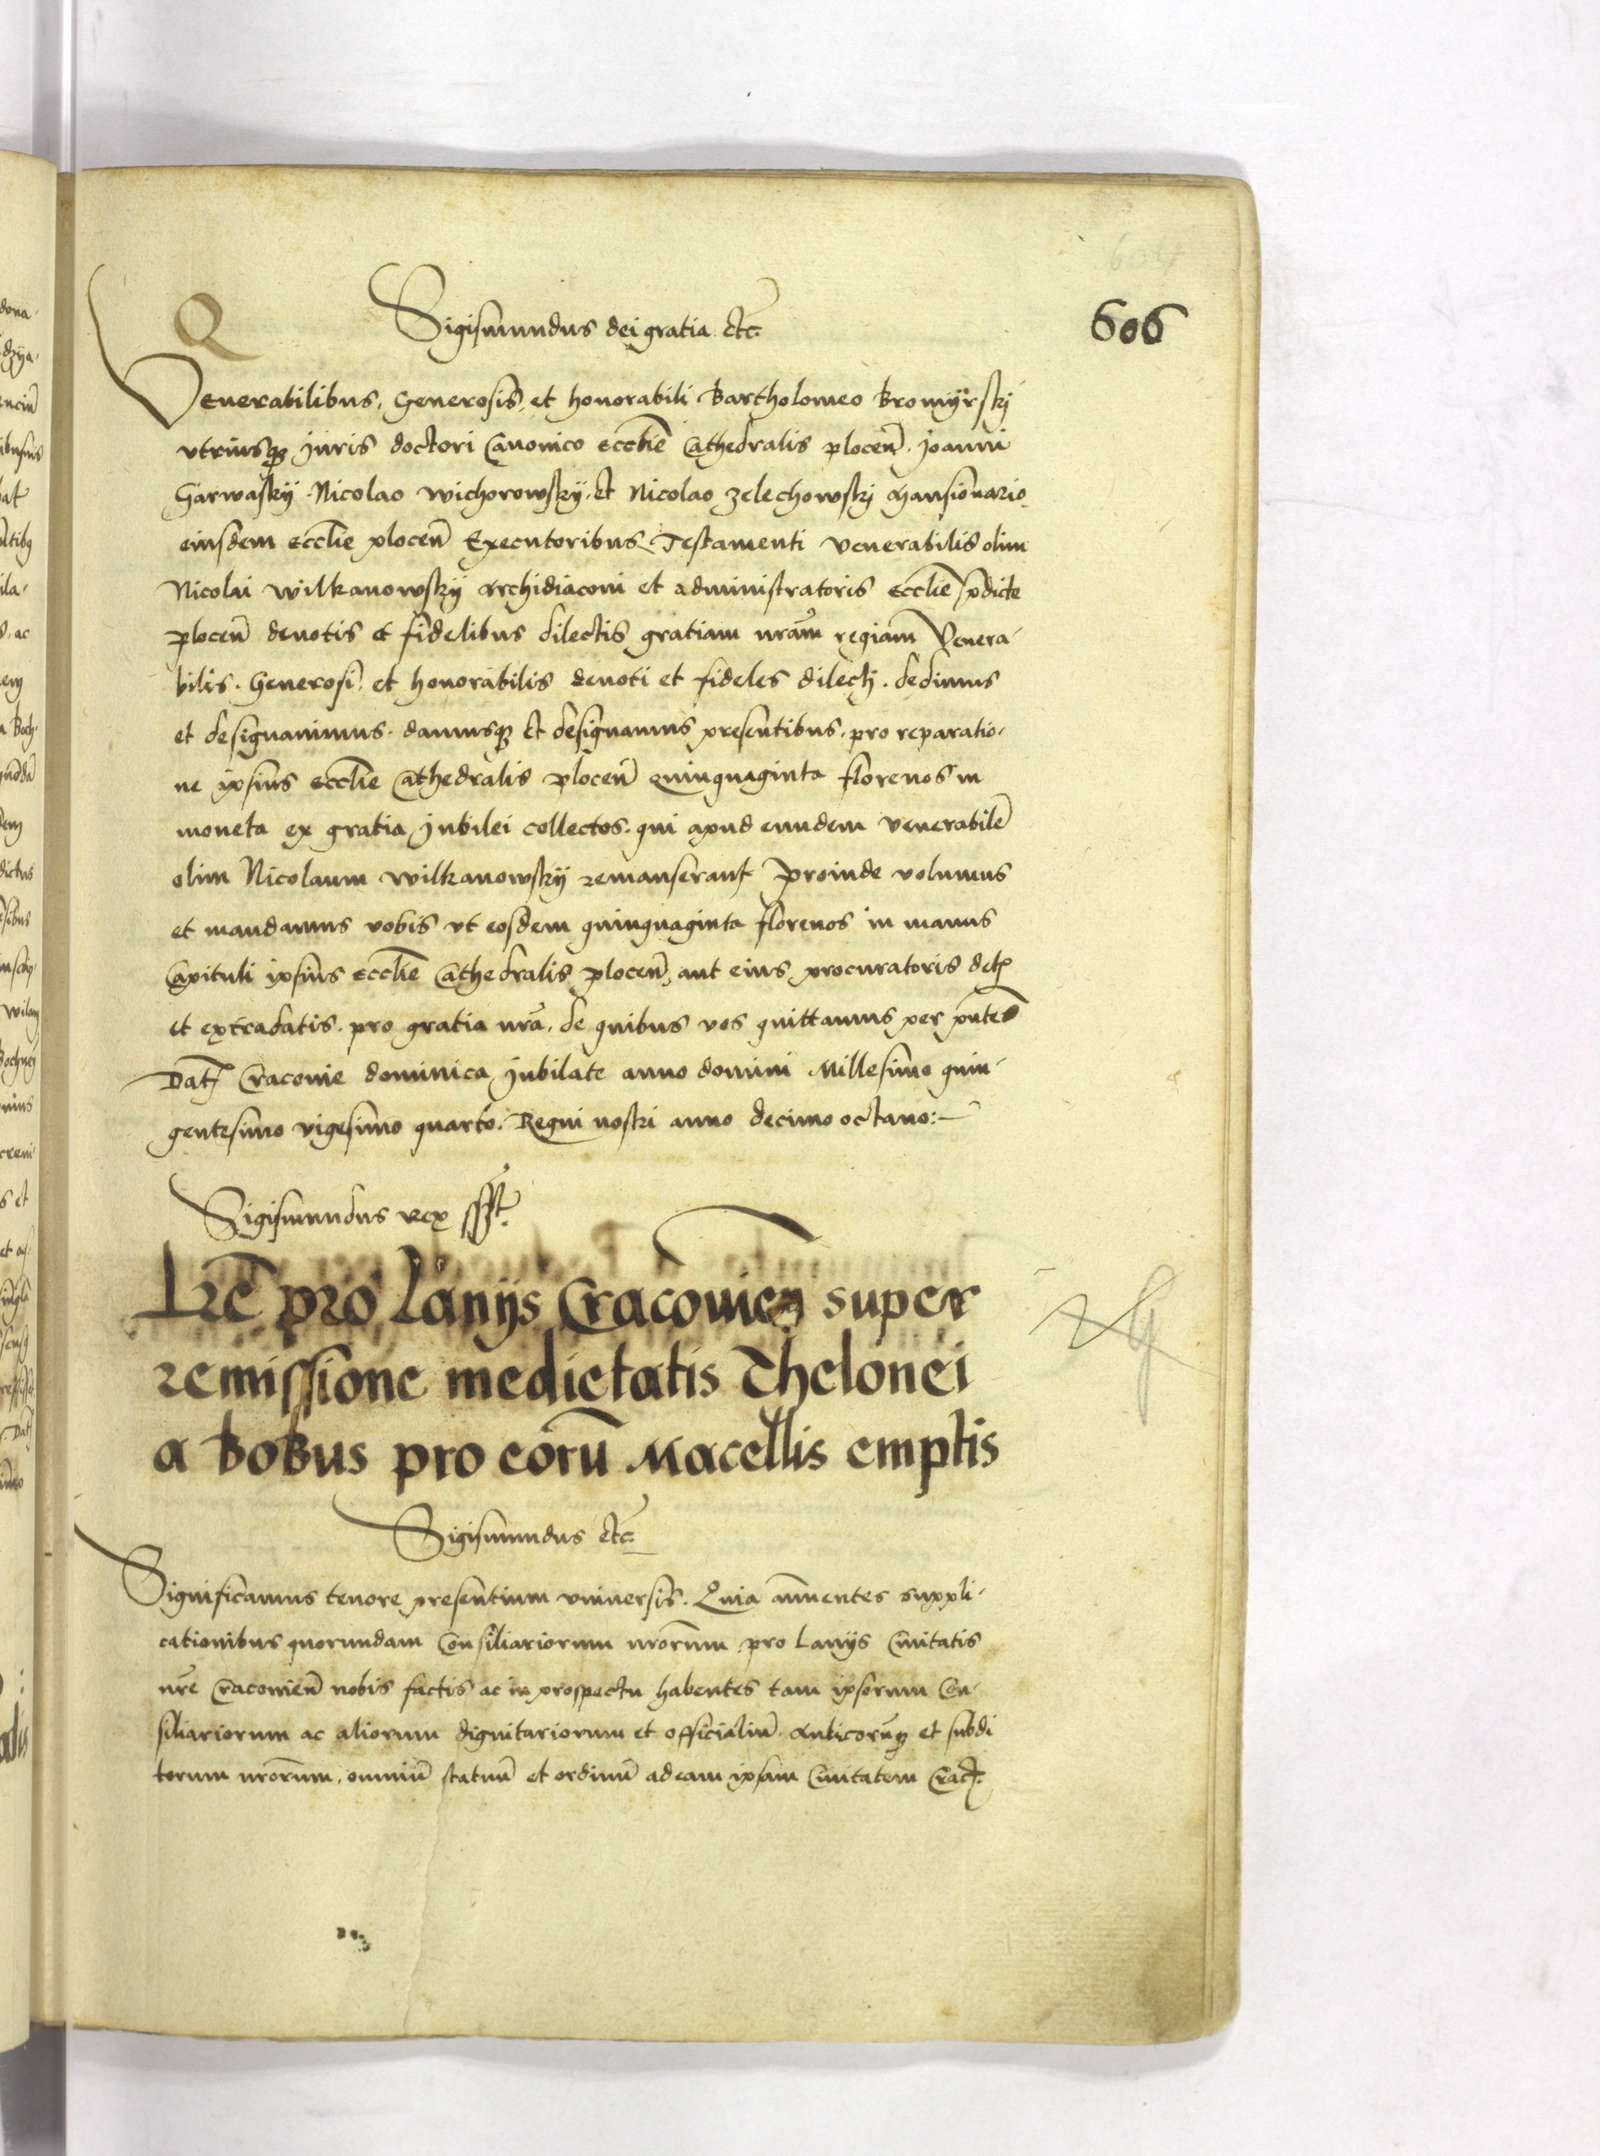 606
Q
Sigismundus dei gratia etc.
Venerabilibus, Generosis, et honorabili Bartholomeo Bromyrskj
vtriusqꝫ Juris doctori Canonico eccl̄ie Cathedralis plocen̄. Joanni
Garwaskÿ. Nicolao wichorowskÿ. et Nicolao zelechowskj Mansionario
eiusdem eccl̄ie plocen̄ Executoribus Testamenti venerabilis olim
Nicolai wilkanowskÿ Archidiaconi et administratoris eccl̄ie p̄dicte
plocen̄ deuotis et fidelibus dilectis gratiam nr̄am regiam Venera-
bilis. Generosi. et honorabilis deuoti et fideles dilectj. dedimus
et designauimus. damusqꝫ et designamus presentibus. pro reparatio-
ne ipsius eccl̄ie Cathedralis plocen̄ quinquaginta florenos in
moneta ex gratia Jubilei collectos. qui apud eundem venerabilē
olim Nicolaum wilkanowskÿ remanserant Proinde volumus
et mandamus vobis vt eosdem quinquaginta florenos in manus
Capituli ipsius eccl̄ie Cathedralis plocen̄, aut eius procuratoris detꝭ
et extradatis. pro gratia nr̄a. de quibus vos quittamus per pn̄tes
Datꝭ Cracouie dominica Jubilate anno domini Millesimo quin-
gentesimo vigesimo quarto. Regni nostri anno decimo octauo:—
Sigismundus rex sst.
Lr̄e pro Lanÿs Cracouien super
remissione medietatis Thelonei
a bobus pro eorū Macellis emptis
Sigismundus etc.
Significamus tenore presentium vniuersis. Quia annuentes suppli-
cationibus quorundam Consiliariorum nr̄orum pro Lanÿs Ciuitatis
nr̄e Cracouien̄ nobis factis ac in prospectu habentes tam ipsorum Con-
siliariorum ac aliorum dignitariorum et officialiū. Aulicorūqꝫ et subdi
torum nr̄orum, omniū statuū et ordinū ad eam ipsam Ciuitatem Crac.